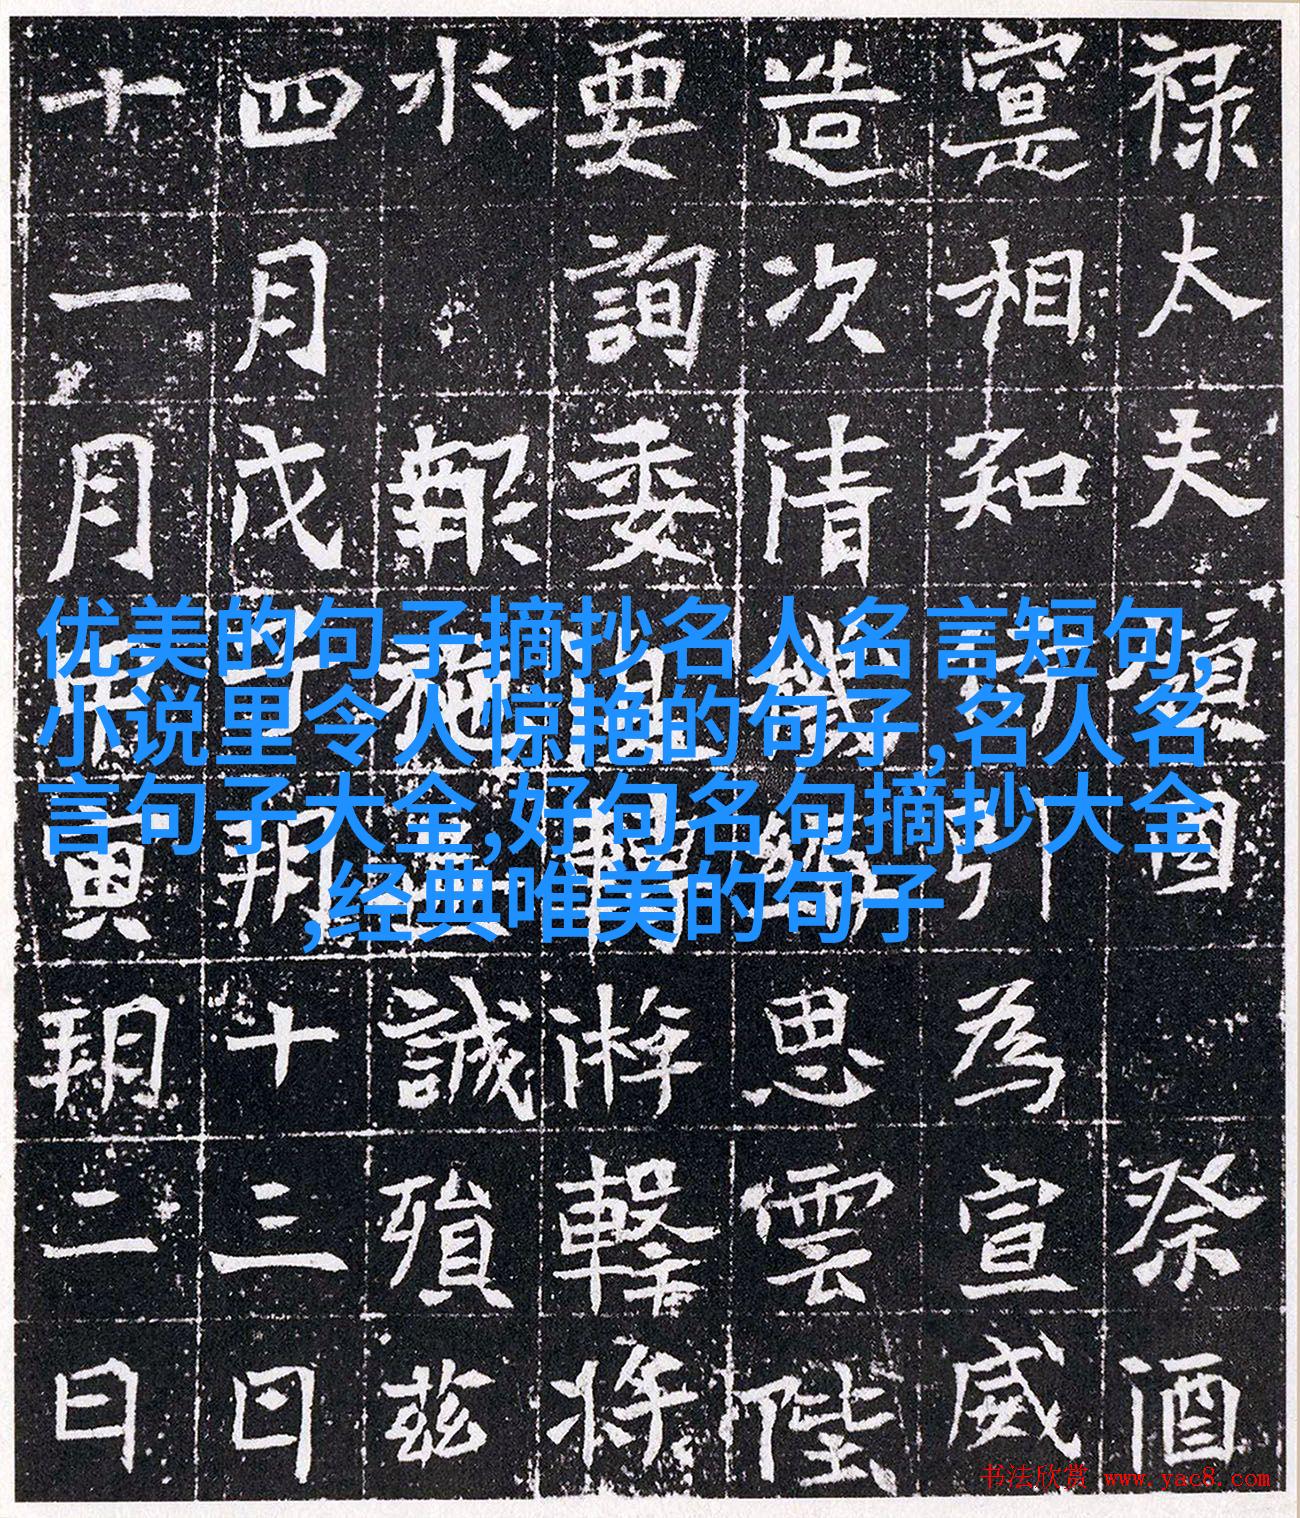 优美的句子摘抄名人名言短句,
小说里令人惊艳的句子,名人名
言句子大全,好句名句摘抄大全
,经典唯美的句子
禄太夫因祭酒
寔相知引為宣威
造次清幾思雲陛
要詢委游擊將
水報施誠殞茲
四月戊子朔十三日
十一月寅朔二日
书法欣赏 www.yac8.com